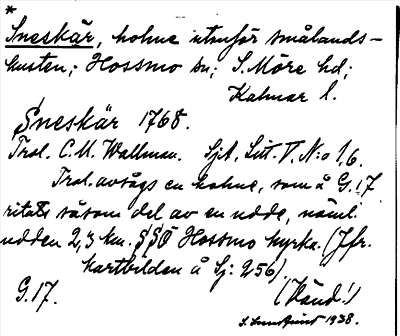 *
Sneskär, holme utanför smålands-
kusten; Hossmo sn; S. Möre hd;
Kalmar l.
Sneskär 1768.
Trol. C. M. Wallman. SjA, Litt. V. N:o 1,6.
Trol. avsågs en holme, som å G. 17
ritats såsom del av en udde, näml.
udden 2,3 km. SSÖ Hossmo kyrka. (Jfr.
kartbilden å Sj: 256).
G. 17. (Vänd!)
1938.